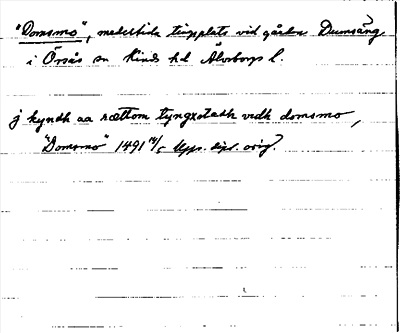 "Domsmo", medeltida tingplats vid gården Dumsäng
i Örsås sn Kinds hd Älvsborgs l.
j kyndh aa rættom tyngxstadh vedh domsmo,
"Domsmo" 1491 Upps. dipl. orig.